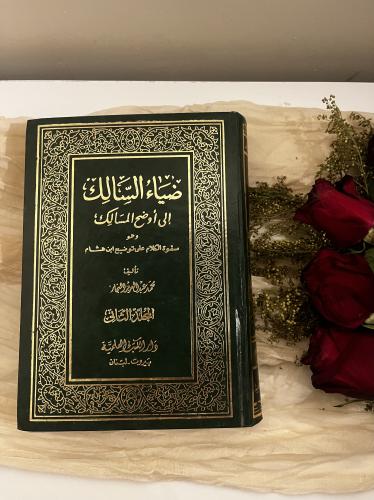 ضياء السالك
إلى أوضح المسالك
وهو
صفوة الكلام على توضيح ابن هشام
تأليف
محمد عبد العزيز النجار
المجلد الثاني
دار الكتب العلمية
بيروت - لبنان